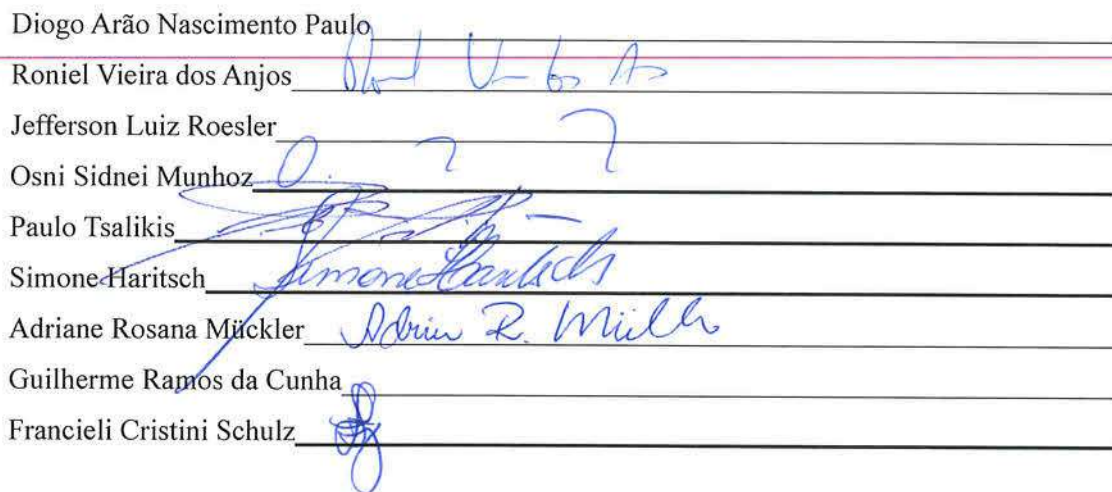 Diogo Arão Nascimento Paulo
Roniel Vieira dos Anjos
Jefferson Luiz Roesler
Osni Sidnei Munhoz
Paulo Tsalikis
Simone Haritsch Simone Haritsch
Adriane Rosana Mückler
Guilherme Ramos da Cunha
Francieli Cristini Schulz